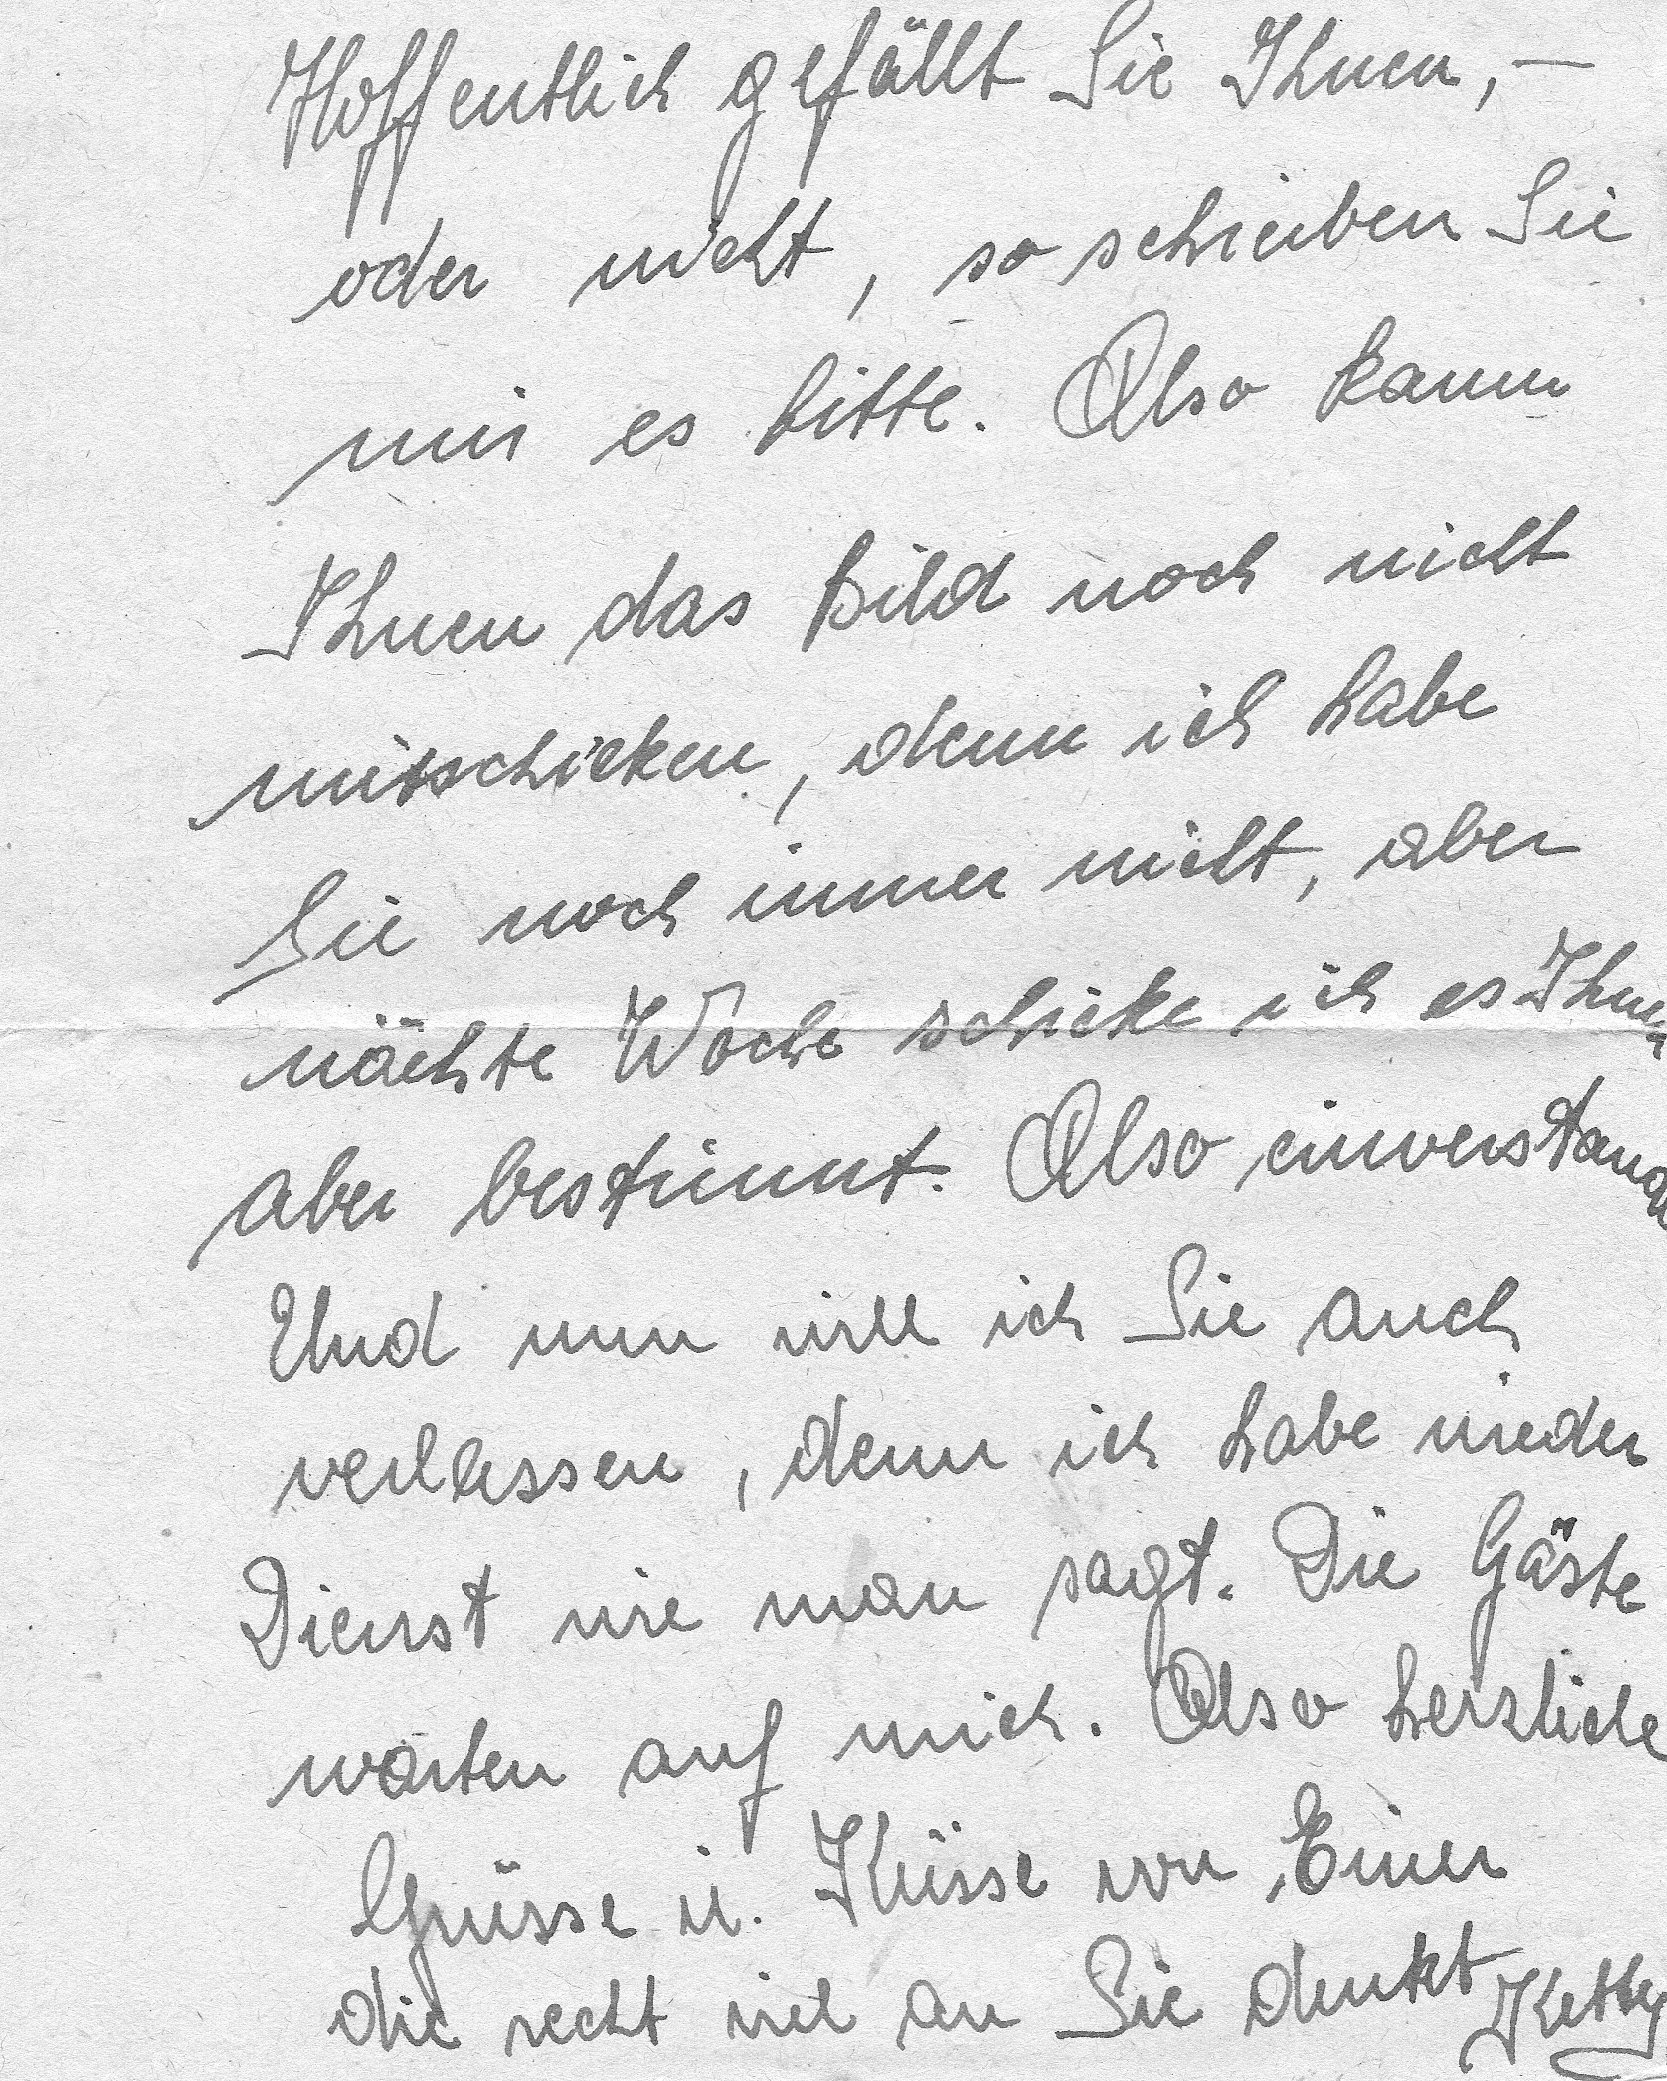 Hoffentlich gefällt Sie Ihnen, –
oder nicht, so schreiben Sie
mir es bitte. Also kann
Ihnen das Bild noch nicht
mitschicken, denn ich habe
Sie noch immer nicht, aber
nächte Woche schicke ich es Ihnen
aber bestimmt. Also einverstand
Und nun will ich Sie auch
verlassen, denn ich habe wieder
Dienst wie man sagt. Die Gäste
warten auf mich. Also herzliche
Grüsse u. Küsse von Einer
die recht viel an Sie denkt Ketty